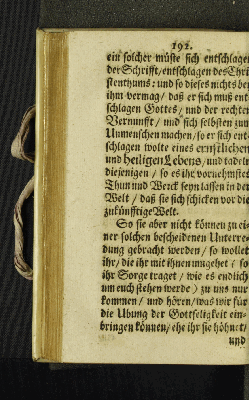 192.
ein solcher müste sich entschlagen
der Schrifft/entschlagen des Chri-
stenthums: und so dieses nichts bey
ihm vermag/ daß er sich muß ent-
schlagen Gottes/ und der rechten
Vernunfft/ und sich selbsten zum
Unmenschen machen/ so er sich ent-
schlagen wolte eines ernstlichen
und heiligen Lebens/ und tadeln
diejenigen/ so es ihr vornehmstes
Thun und Werck seyn lassen in der
Welt/ daß sie sich schicken vor die
zukünfftige Welt.
So sie aber nicht können zu ei-
ner solchen bescheidenen Unterre-
dung gebracht werden/ so wollet
ihr/ die ihr mit ihnen umgehet (so
ihr Sorge traget/ wie es endlich
um euch stehen werde) zu uns nur
kommen/ und hören/ was wir für
die Ubung der Gottseligkeit ein-
bringen können/ ehe ihr sie höhnet/
und